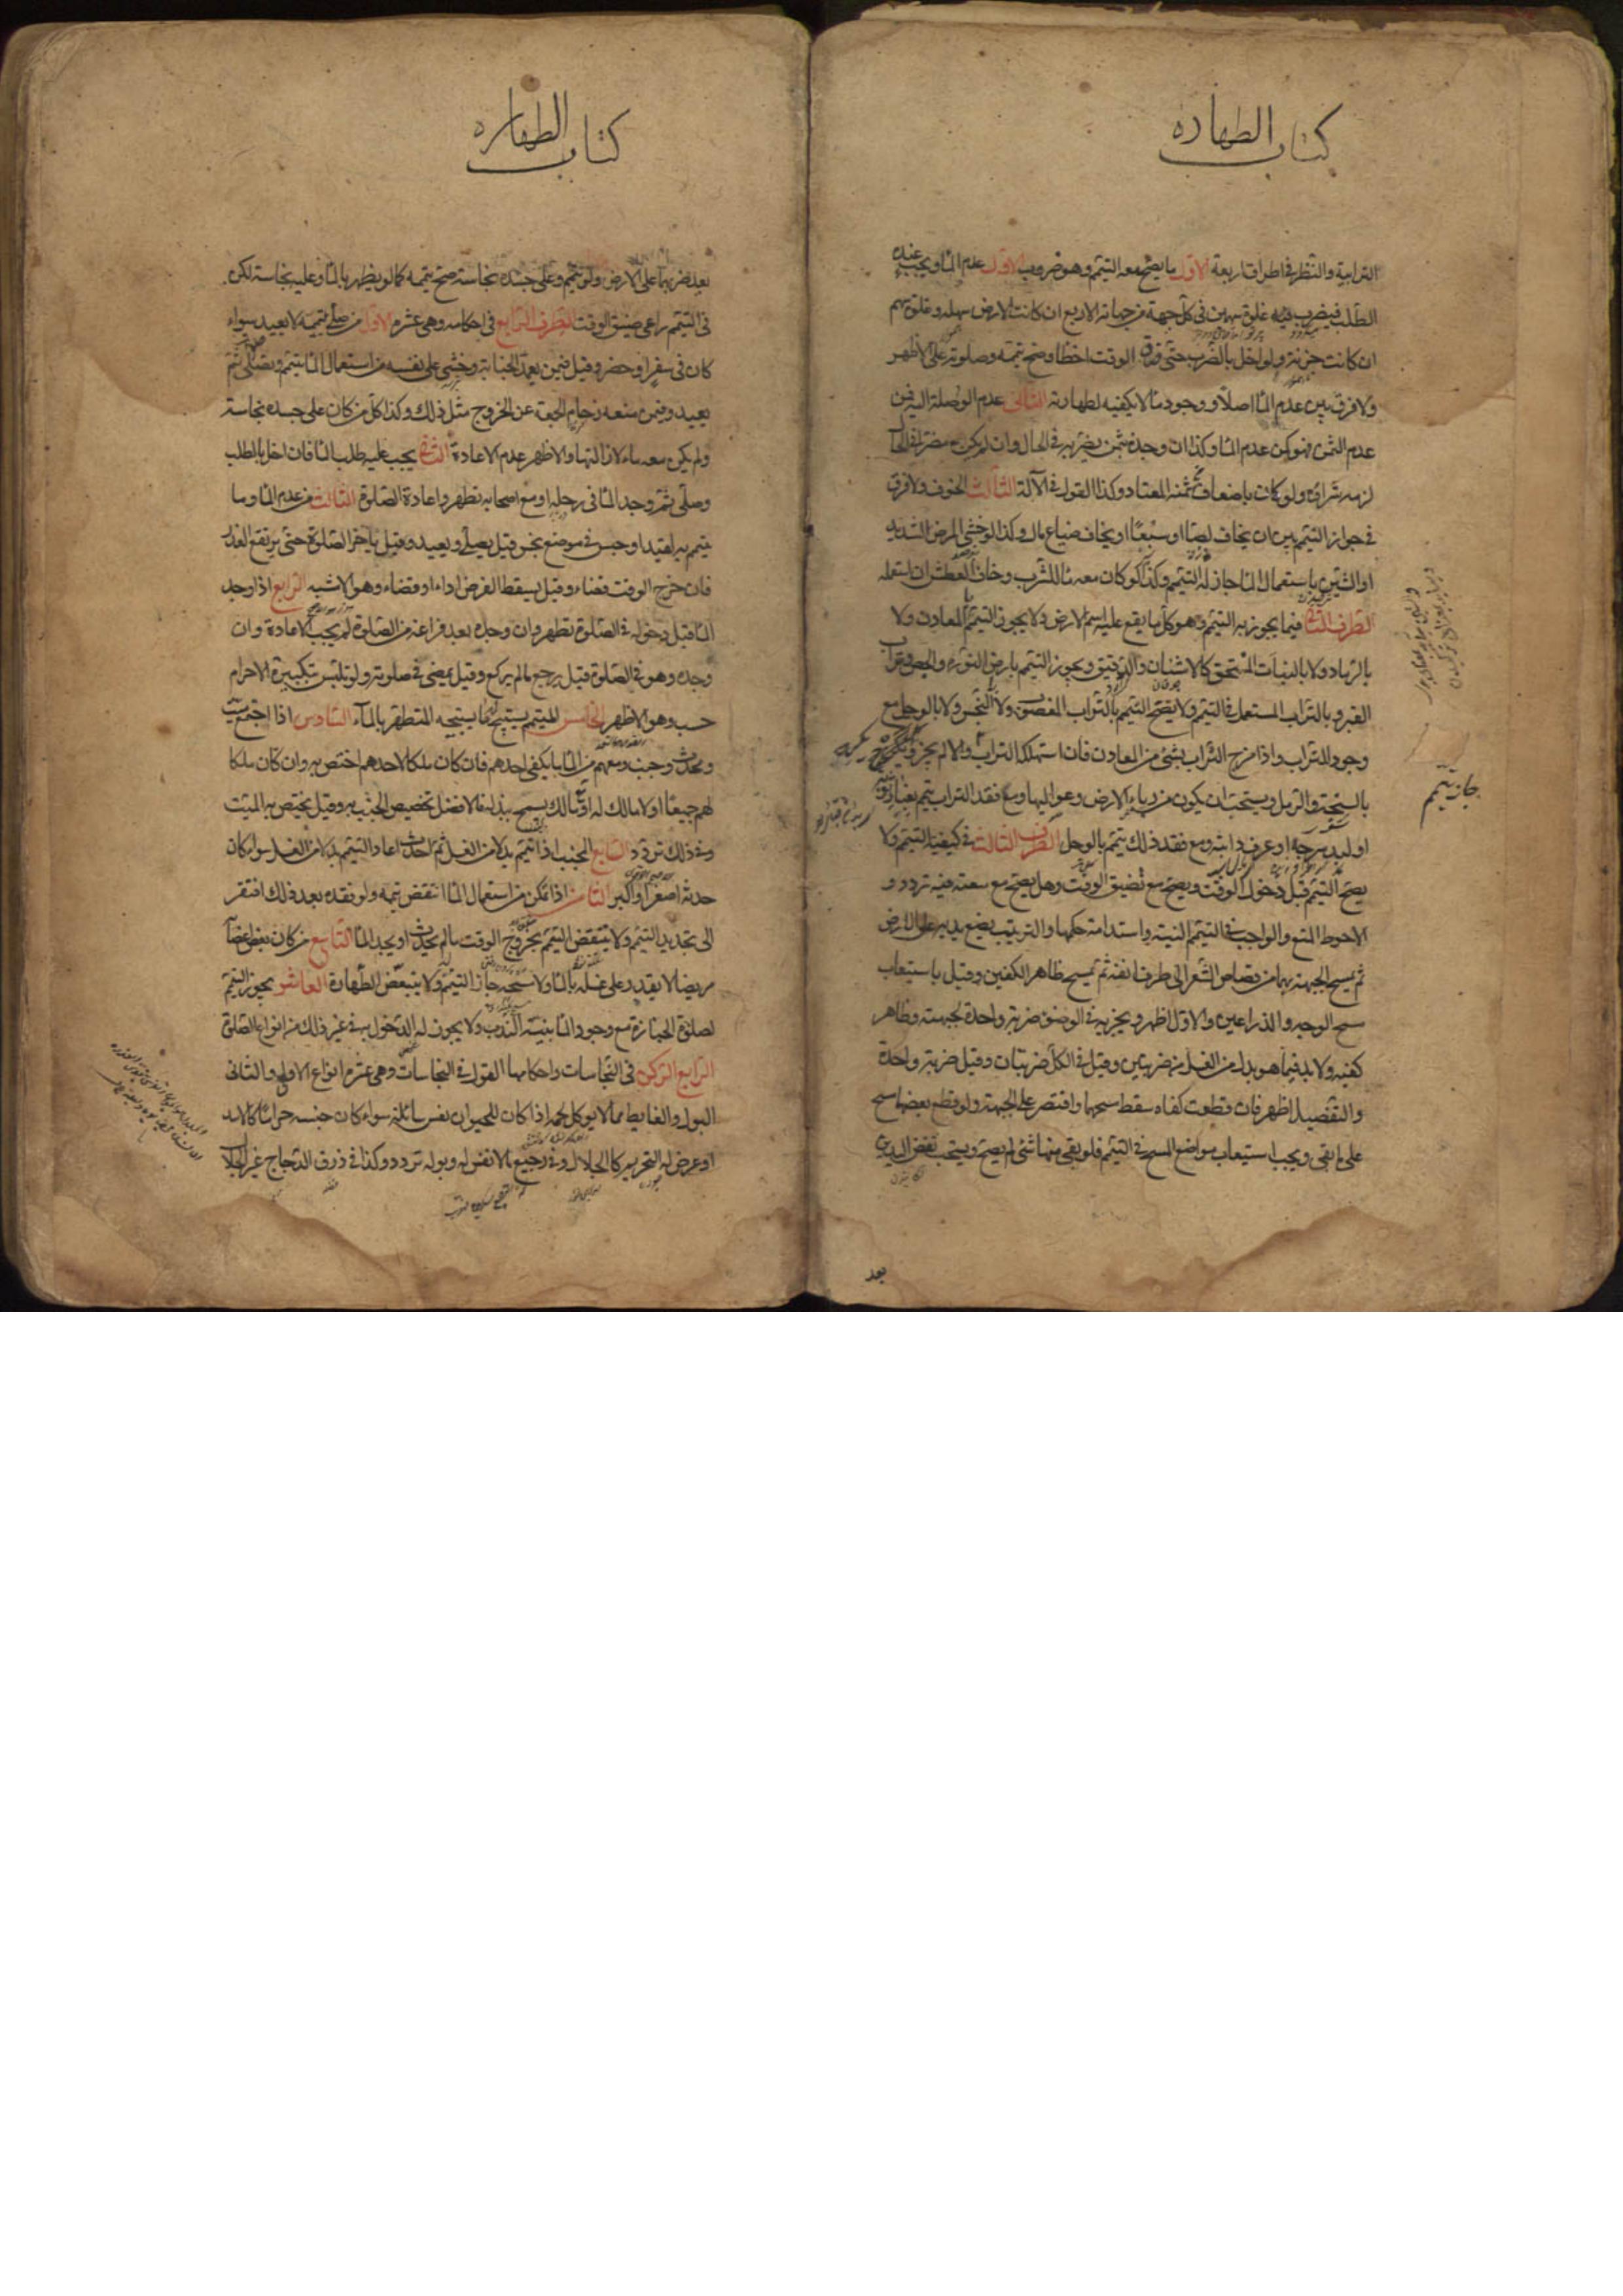 كتاب الطهاره
الترابية والنظر في اطراف اربعة الاول ما يصح معه التيمم وهو ضروب الاول عدم الماء ويجب عنده
الطلب فيضرب غلوة سهمين في كل جهة من جهاته الاربع ان كانت الارض سهلة وغلوة سهم
ان كانت حزنة ولو اخل بالضرب حتى ضاق الوقت اخطا وصح تيممه وصلوته على الاظهر
ولا فرق بين عدم الماء اصلا و وجود ما لا يكفيه لطهارته الثاني عدم الوصلة اليه فمن
عدم الثمن فهو كمن عدم الماء وكذا ان وجده بثمن يضر به في الحال وان لم يكن مضرا في الحال
لزمه شراؤه ولو كان باضعاف ثمنه المعتاد وكذا القول في الآلة الثالث الخوف ولا فرق
في جواز التيمم بين ان يخاف لصا او سبعا او يخاف ضياع مال وكذا لو خشي المرض الشديد
او الشين باستعمال الماء جاز له التيمم وكذا لو كان معه ماء للشرب وخاف العطش ان استعمله
الطرف الثاني فيما يجوز به التيمم وهو كل ما يقع عليه اسم الارض ولا يجوز التيمم بالمعادن ولا
بالرماد ولا بالنبات المنسحق كالاشنان والدقيق ويجوز التيمم بارض النورة والجص وتراب
القبر وبالتراب المستعمل في التيمم ولا يصح التيمم بالتراب المغصوب ولا النجس ولا بالوحل مع
وجود التراب واذا مزج التراب بشئ من المعادن فان استهلكه التراب والا لم يجز ويكره
بالسبخة والرمل ويستحب ان يكون من رباء الارض وعواليها ومع فقد التراب يتيمم بغبار ثوبه
او لبد سرجه او عرف دابته ومع فقد ذلك يتيمم بالوحل الطرف الثالث في كيفية التيمم ولا
يصح التيمم قبل دخول الوقت ويصح مع تضيق الوقت وهل يصح مع سعته فيه تردد و
الاحوط المنع والواجب في التيمم النية واستدامة حكمها والترتيب يضع يديه على الارض
ثم يمسح الجبهة بهما من قصاص الشعر الى طرف انفه ثم يمسح ظاهر الكفين وقيل باستيعاب
مسح الوجه والذراعين والاول اظهر ويجزيه في الوضوء ضربة واحدة لجبهته وظاهر
كفيه ولا بد فيما هو بدل من الغسل من ضربتين وقيل في الكل ضربتان وقيل ضربة واحدة
والتفصيل اظهر فان قطعت كفاه سقط مسحهما واقتصر على الجبهة ولو قطع بعضهما مسح
على ما بقى ويجب استيعاب مواضع المسح في التيمم فلو بقى منها شئ لم يصح ويستحب نفض اليدين
جاز تيمم
بعد
كتاب الطهاره
بعد ضربهما على الارض ولو تيمم وعلى جسده نجاسة صح تيممه كما لو تطهر بالماء وعليه نجاسة لكن
في التيمم راعى ضيق الوقت الطرف الرابع في احكامه وهي عشرة الاول من صلى بتيممه لا يعيد سواء
كان في سفر او حضر وقيل فيمن تعمد الجنابة وخشى على نفسه من استعمال الماء يتيمم ويصلى ثم
يعيد وفيمن منعه زحام الجمعة عن الخروج مثل ذلك وكذا كل من كان على جسده نجاسة
ولم يكن معه ماء لازالتها والاظهر عدم الاعادة الثاني يجب عليه طلب الماء فان اخل بالطلب
وصلى ثم وجد الماء في رحله او مع اصحابه تطهر واعاد الصلوة الثالث من عدم الماء وما
يتيمم به لقيد او حبس في موضع نجس قيل يصلى ويعيد وقيل يأخر الصلوة حتى يرتفع العذر
فان خرج الوقت قضاء وقيل يسقط الفرض اداء او قضاء وهو الاشبه الرابع اذا وجد
الماء قبل دخوله في الصلوة تطهر وان وجده بعد فراغه من الصلوة لم يجب الاعادة وان
وجده وهو في الصلوة قيل يرجع ما لم يركع وقيل يمضى في صلوته ولو تلبس بتكبيرة الاحرام
حسب وهو الاظهر الخامس المتيمم يستبيح ما يستبيحه المتطهر بالماء السادس اذا اجتمع ميت
ومحدث وجنب ومعهم من الماء ما يكفى احدهم فان كان ملكا لاحدهم اختص به وان كان ملكا
لهم جميعا او لا مالك له او مالك يسمح ببذله فالافضل تخصيص الجنب به وقيل يختص به الميت
وفي ذلك تردد السابع الجنب اذا تيمم بدلا من الغسل ثم احدث اعاد التيمم بدلا من الغسل سواء كان
حدثه اصغر او اكبر الثامن اذا تمكن من استعمال الماء انتقض تيممه ولو فقده بعد ذلك افتقر
الى تجديد التيمم ولا ينتقض التيمم بخروج الوقت ما لم يحدث او يجد الماء التاسع من كان بعض اعضائه
مريضا لا يقدر على غسله بالماء ولا مسحه جاز التيمم ولا يتبعض الطهارة العاشر يجوز التيمم
لصلوة الجنازة مع وجود الماء بنية الندب ولا يجوز له الدخول به في غير ذلك من انواع الصلوة
الرابع الركن في النجاسات واحكامها القول في النجاسات وهي عشرة انواع الاول والثاني
البول والغايط مما لا يوكل لحمه اذا كان للحيوان نفس سائلة سواء كان جنسه حراما كالاسد
او عرض له التحريم كالجلال وفي رجيع ما لا نفس له وبوله تردد وكذا في ذرق الدجاج غير الجلال